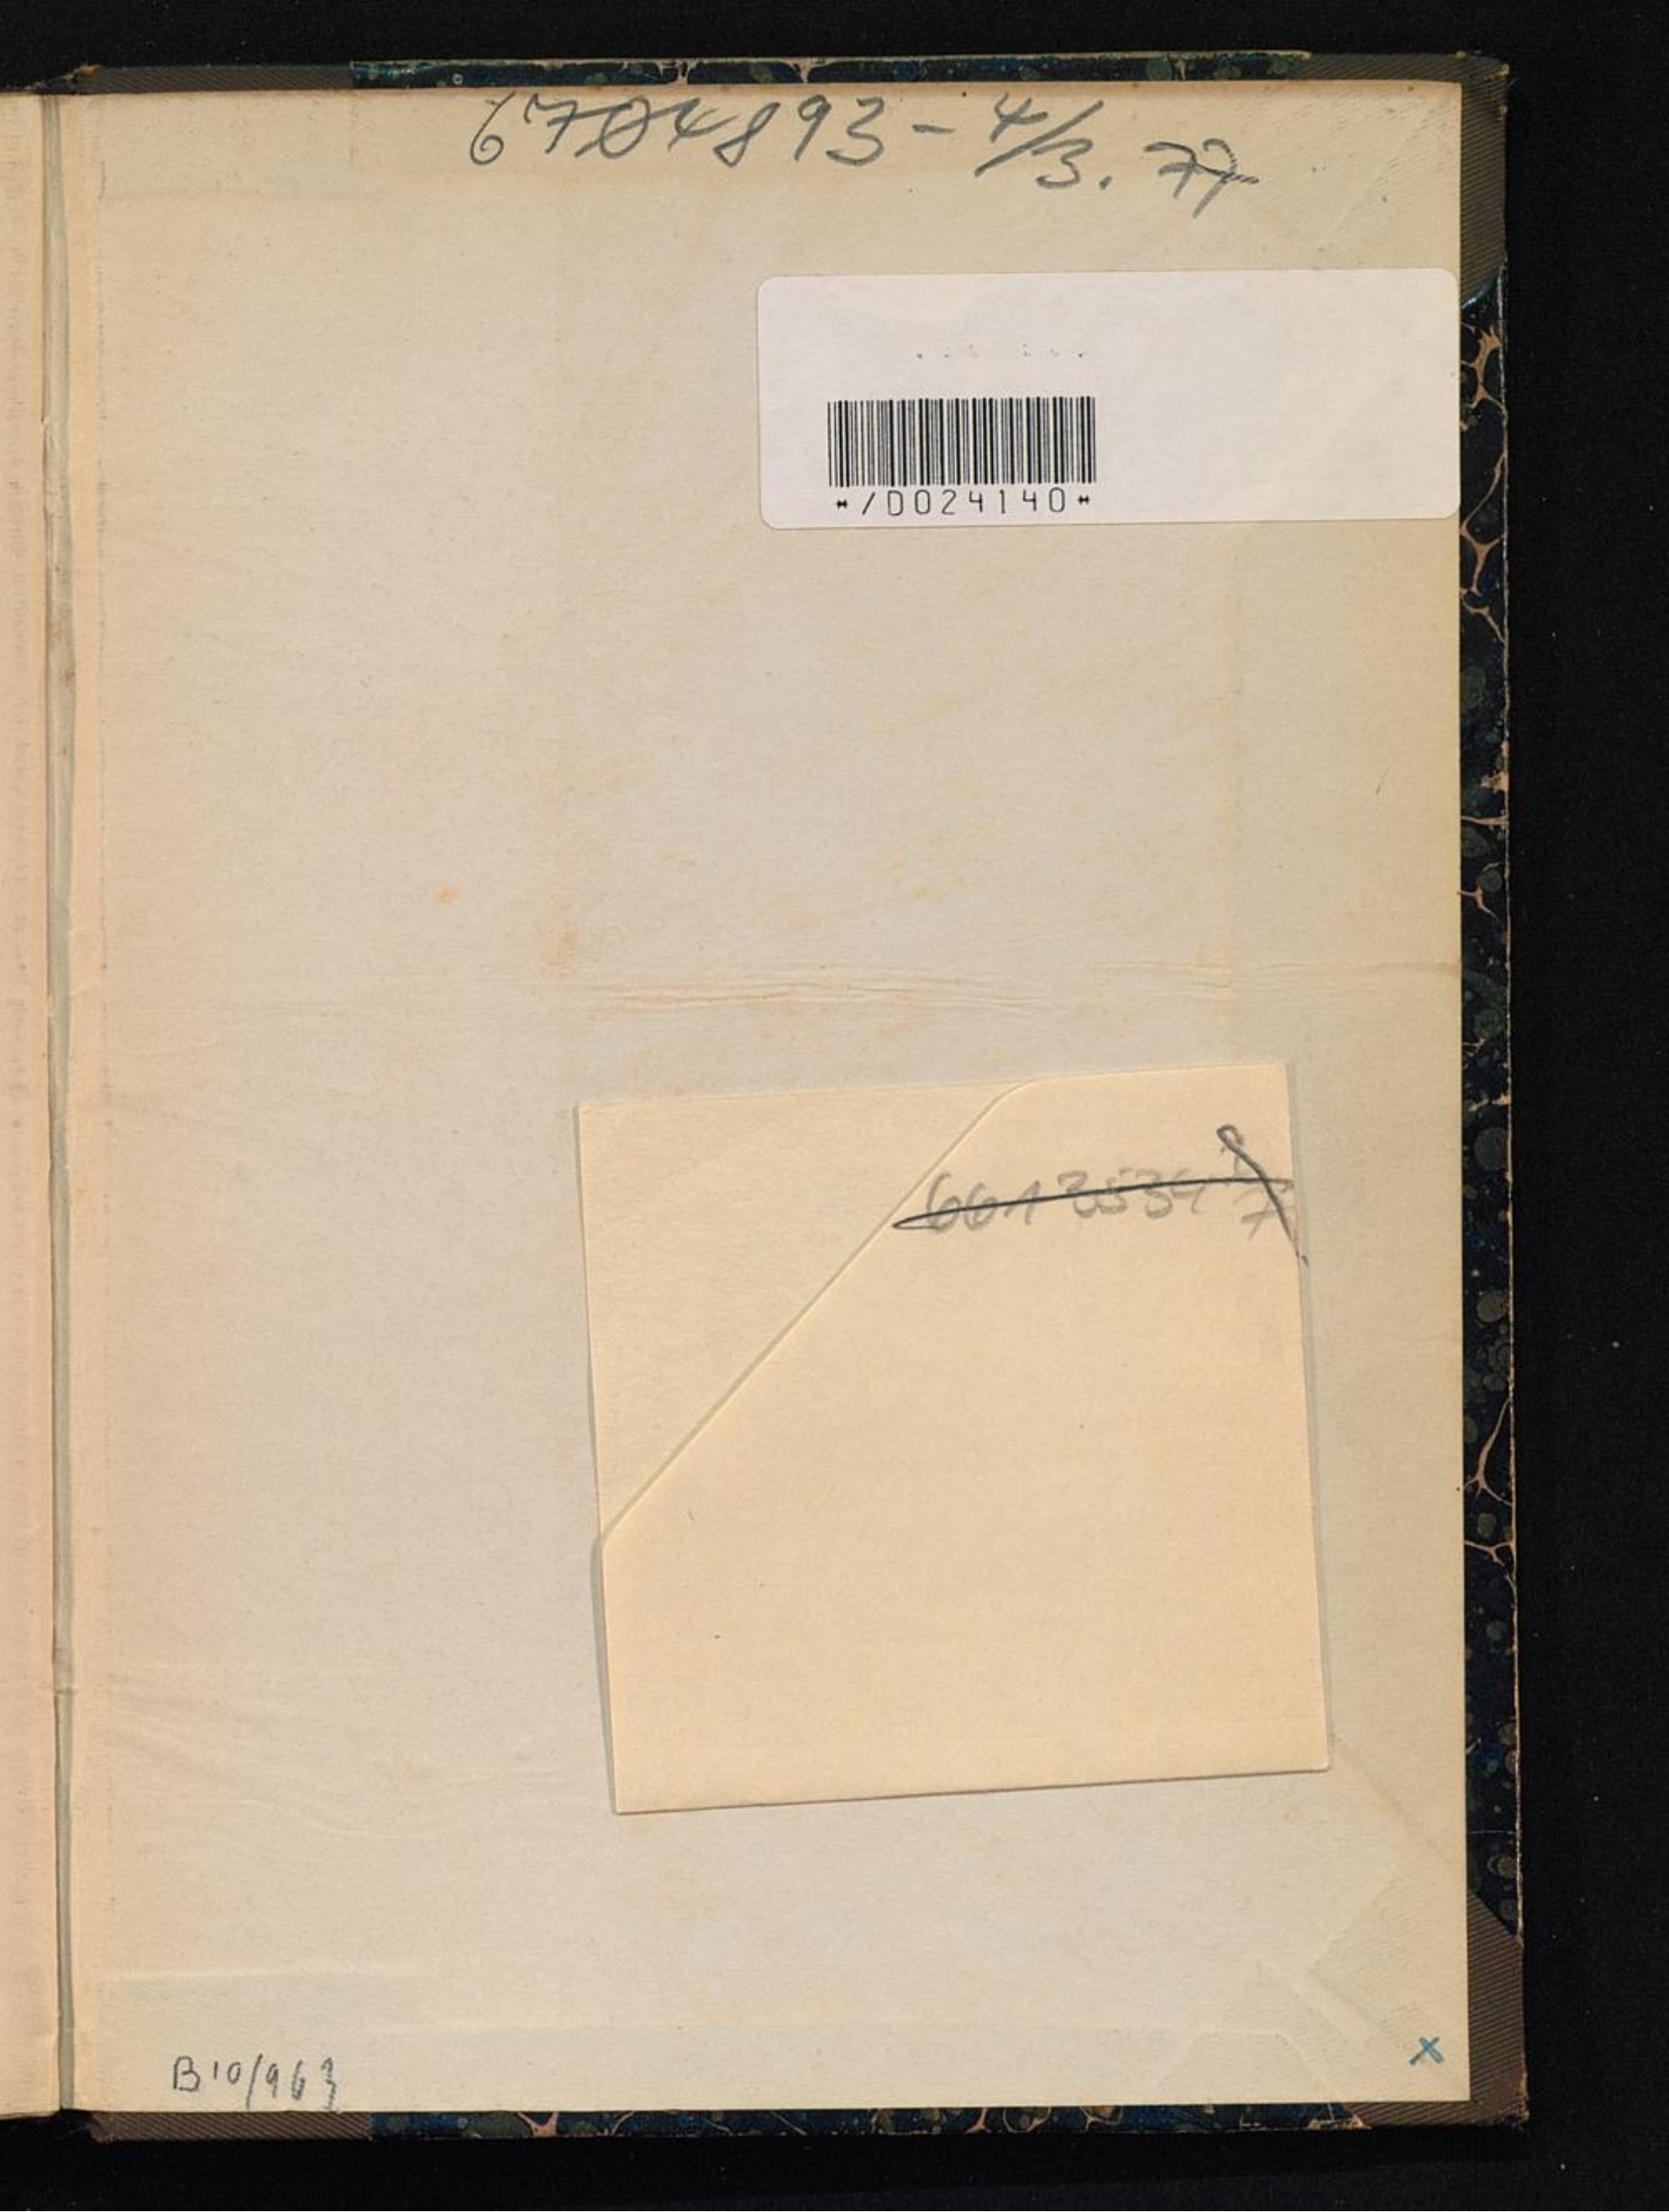 6704893-4/3.77
*/D024140*
6613534
B10/963
x